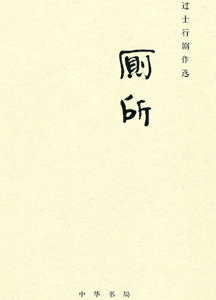 过士行剧作选
厕所
中华书局